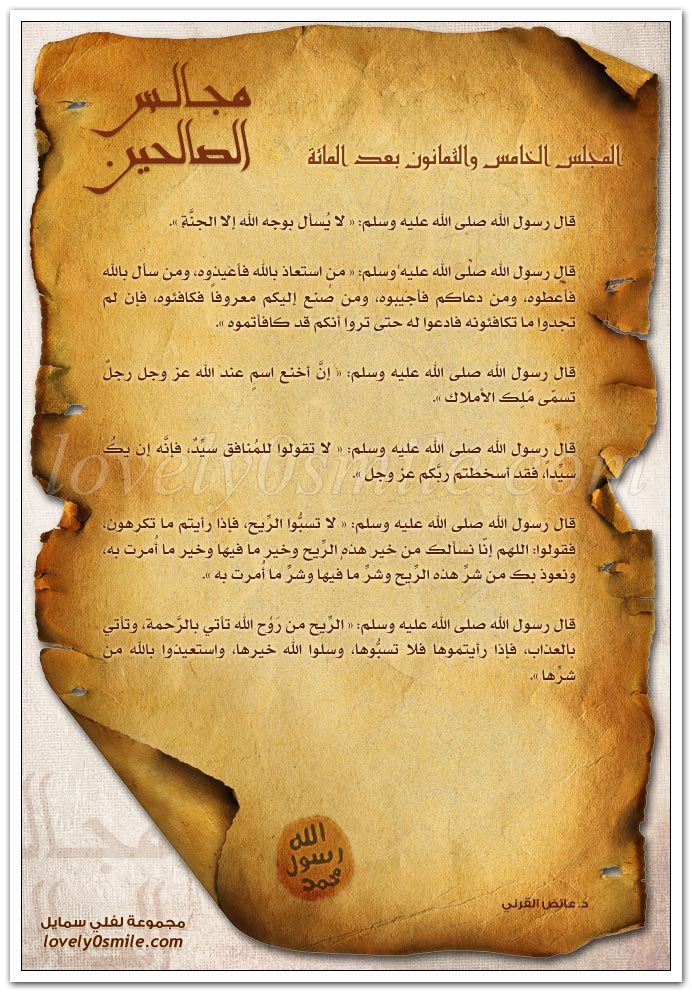 مجالس
الصالحين
المجلس الخامس والثمانون بعد المائة
قال رسول الله صلى الله عليه وسلم: « لا يُسأل بوجه الله إلا الجنَّة ».
قال رسول الله صلى الله عليه وسلم: « من استعاذ بالله فأعيذوه، ومن سأل بالله
فأعطوه، ومن دعاكم فأجيبوه، ومن صنع إليكم معروفاً فكافئوه، فإن لم
تجدوا ما تكافئونه فادعوا له حتى تروا أنكم قد كافأتموه ».
قال رسول الله صلى الله عليه وسلم: « إنَّ أخنع اسمٍ عند الله عز وجل رجلٌ
تسمّى مَلِك الأملاك ».
قال رسول الله صلى الله عليه وسلم: « لا تقولوا للمُنافق سيِّدٌ، فإنَّه إن يكُ
سيِّداً، فقد أسخطتم ربَّكم عز وجل ».
lovely0smile.com
قال رسول الله صلى الله عليه وسلم: « لا تسبُّوا الرِّيح، فإذا رأيتم ما تكرهون،
فقولوا: اللهم إنّا نسألك من خير هذه الرِّيح وخير ما فيها وخير ما أُمرت به،
ونعوذ بك من شرِّ هذه الرِّيح وشرِّ ما فيها وشرِّ ما أُمرت به ».
قال رسول الله صلى الله عليه وسلم: « الرِّيح من رَوْح الله تأتي بالرَّحمة، وتأتي
بالعذاب، فإذا رأيتموها فلا تسبُّوها، وسلوا الله خيرها، واستعيذوا بالله من
شرِّها ».
الله
رسول
محمد
د.عائض القرني
مجموعة لفلي سمايل
lovely0smile.com